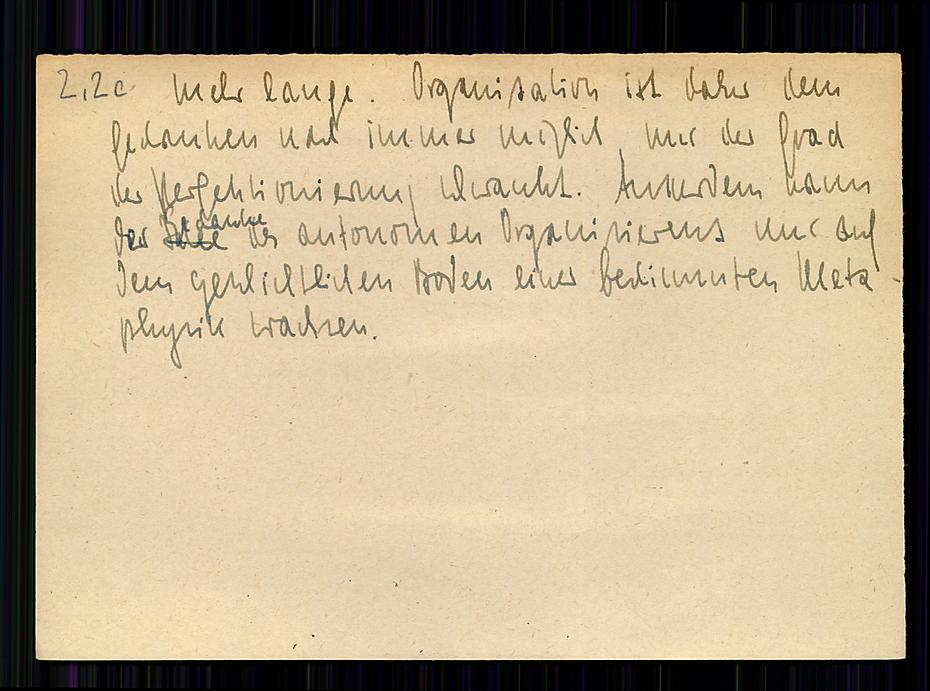 2,2c mehr lange. Organisation ist daher dem
Gedanken nach immer möglich, nur der Grad
der Perfektionierung schwankt. Ausserdem kann
der Gedanke des autonomen Organisierens nur auf
dem geschichtlichen Boden einer bestimmten Meta-
physik wachsen.